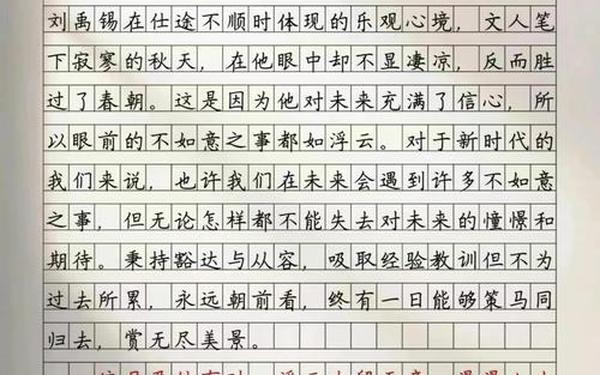 刘禹锡在仕途不顺时体现的乐观心境，文人笔
下寂寥的秋天，在他眼中却不显凄凉，反而胜
过了春朝。这是因为他对未来充满了信心，所
以眼前的不如意之事都如浮云。对于新时代的
我们来说，也许我们在未来会遇到许多不如意
之事，但无论怎样都不能失去对未来的憧憬和
期待。秉持豁达与从容，吸取经验教训但不为
过去所累，永远朝前看，终有一日能够策马同
归去，赏无尽美景。